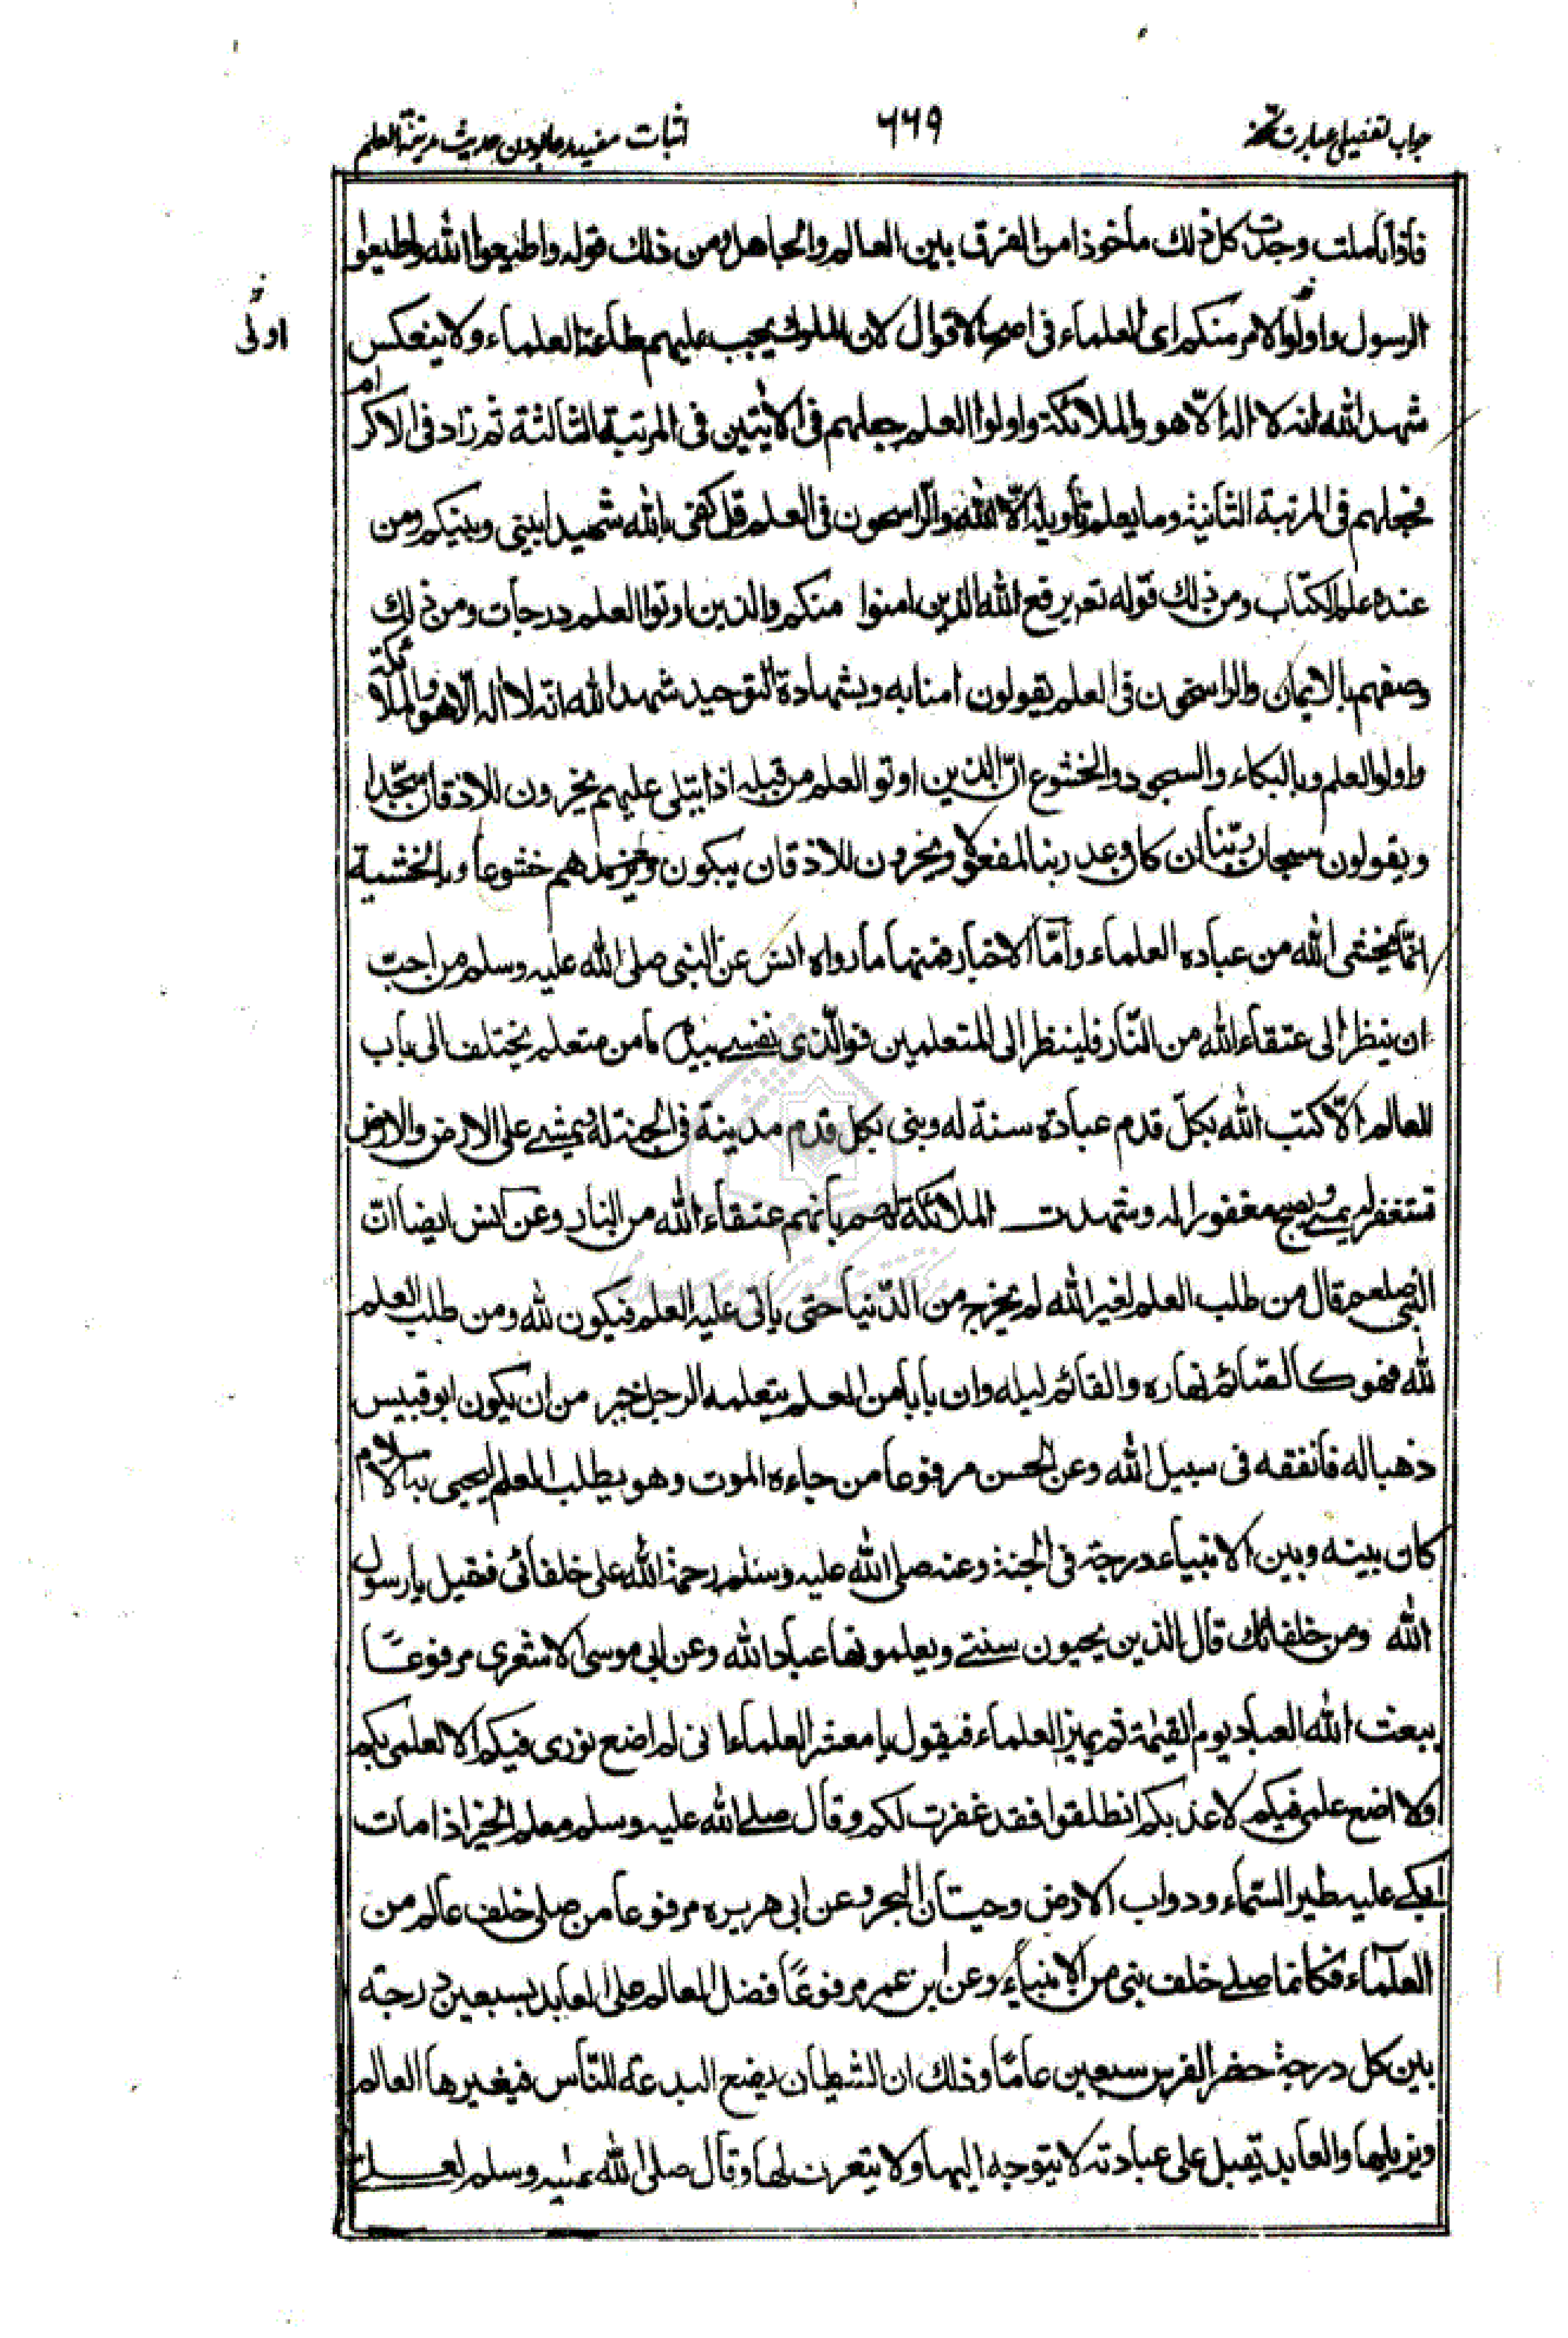 جواب تفصیلی عبارت تحفه
۶۶۹
اثبات مفید مدعا بودن حدیث مدینة العلم
فأذا تأملت وجدت كل ذلك مأخوذا من الفرق بين العالم والجاهل ومن ذلك قوله واطيعوا الله واطيعوا
الرسول واولوا الامر منكم اى العلماء فى اصح الاقوال لان الملوك يجب عليهم طاعة العلماء ولا ينعكس
اولى
شهد الله انه لا اله الّا هو والملائكة واولوا العلم جعلهم فى الأيتين فى المرتبة الثالثة ثم زاد فى الاكرام
فجعلهم فى المرتبة الثانية وما يعلم تأويله الّا الله والرّاسخون فى العلم قل كفى بالله شهيدا بينى وبينكم ومن
عنده علم الكتاب ومن ذلك قوله تعه يرفع الله الذين امنوا منكم والذين اوتوا العلم درجات ومن ذلك
وصفهم بالايمان والراسخون فى العلم يقولون امنا به وبشهادة التوحيد شهد الله انّه لا اله الّا هو والملائكة
واولوا العلم وبالبكاء والسجود والخشوع انّ الذين اوتو العلم من قبله اذا يتلى عليهم يخرون للاذقان سجّدا
ويقولون سبحان ربّنا ان كان وعد ربنا لمفعولا ويخرون للاذقان يبكون ويزيدهم خشوعا وبالخشية
انّما يخشى الله من عباده العلماء وامّا الاخبار فمنها ما رواه انس عن النبى صلى الله عليه وسلم من احبّ
ان ينظر الى عتقاء الله من النّار فلينظر الى المتعلمين فوالّذى نفسى بيده ما من متعلم يختلف الى باب
العالم الّا كتب الله بكلّ قدم عبادة سنة له وبنى بكل قدم مدينة فى الجنة له ويمشى على الارض والارض
تستغفر له ويمسى ويصبح مغفورا له وشهدت الملائكة لهم بأنهم عتقاء الله من النار وعن انس ايضا انّ
النّبى صلعم قال من طلب العلم لغير الله لم يخرج من الدّنيا حتى ياتى عليه العلم فيكون لله ومن طلب العلم
لله فهو كالصّائم نهاره والقائم ليله وان بابا من العلم يتعلمه الرجل خير من ان يكون ابو قبيس
ذهبا له فأنفقه فى سبيل الله وعن الحسن مرفوعا من جاءه الموت وهو يطلب العلم ليحيى به الاسلام
كان بينه وبين الانبياء درجة فى الجنة وعنه صلى الله عليه وسلم رحمة الله على خلفائى فقيل يا رسول
الله ومن خلفائك قال الذين يحيون سنتى ويعلمونها عباد الله وعن ابى موسى الاشعرى مرفوعًا
يبعث الله العباد يوم القيمة ثم يميز العلماء فيقول يا معشر العلماء انى لم اضع نورى فيكم الا لعلمى بكم
ولا اضع علمى فيكم لاعذبكم انطلقوا فقد غفرت لكم وقال صلى الله عليه وسلم معلم الخير اذا مات
ابكى عليه طير السّماء ودواب الارض وحيتان البحر وعن ابى هريره مرفوعا من صلى خلف عالم من
العلماء فكانما صلى خلف نبى من الانبياء وعن ابن عمر مرفوعًا فضل العالم على العابد بسبعين درجة
بين كل درجة حضر الفرس سبعين عامًا وذلك ان الشيطان يضع البدعة للنّاس فيغيرها العالم
ويزيلها والعابد يقبل على عبادته لا يتوجه اليها ولا يتعرف لها وقال صلى الله عليه وسلم لعلى